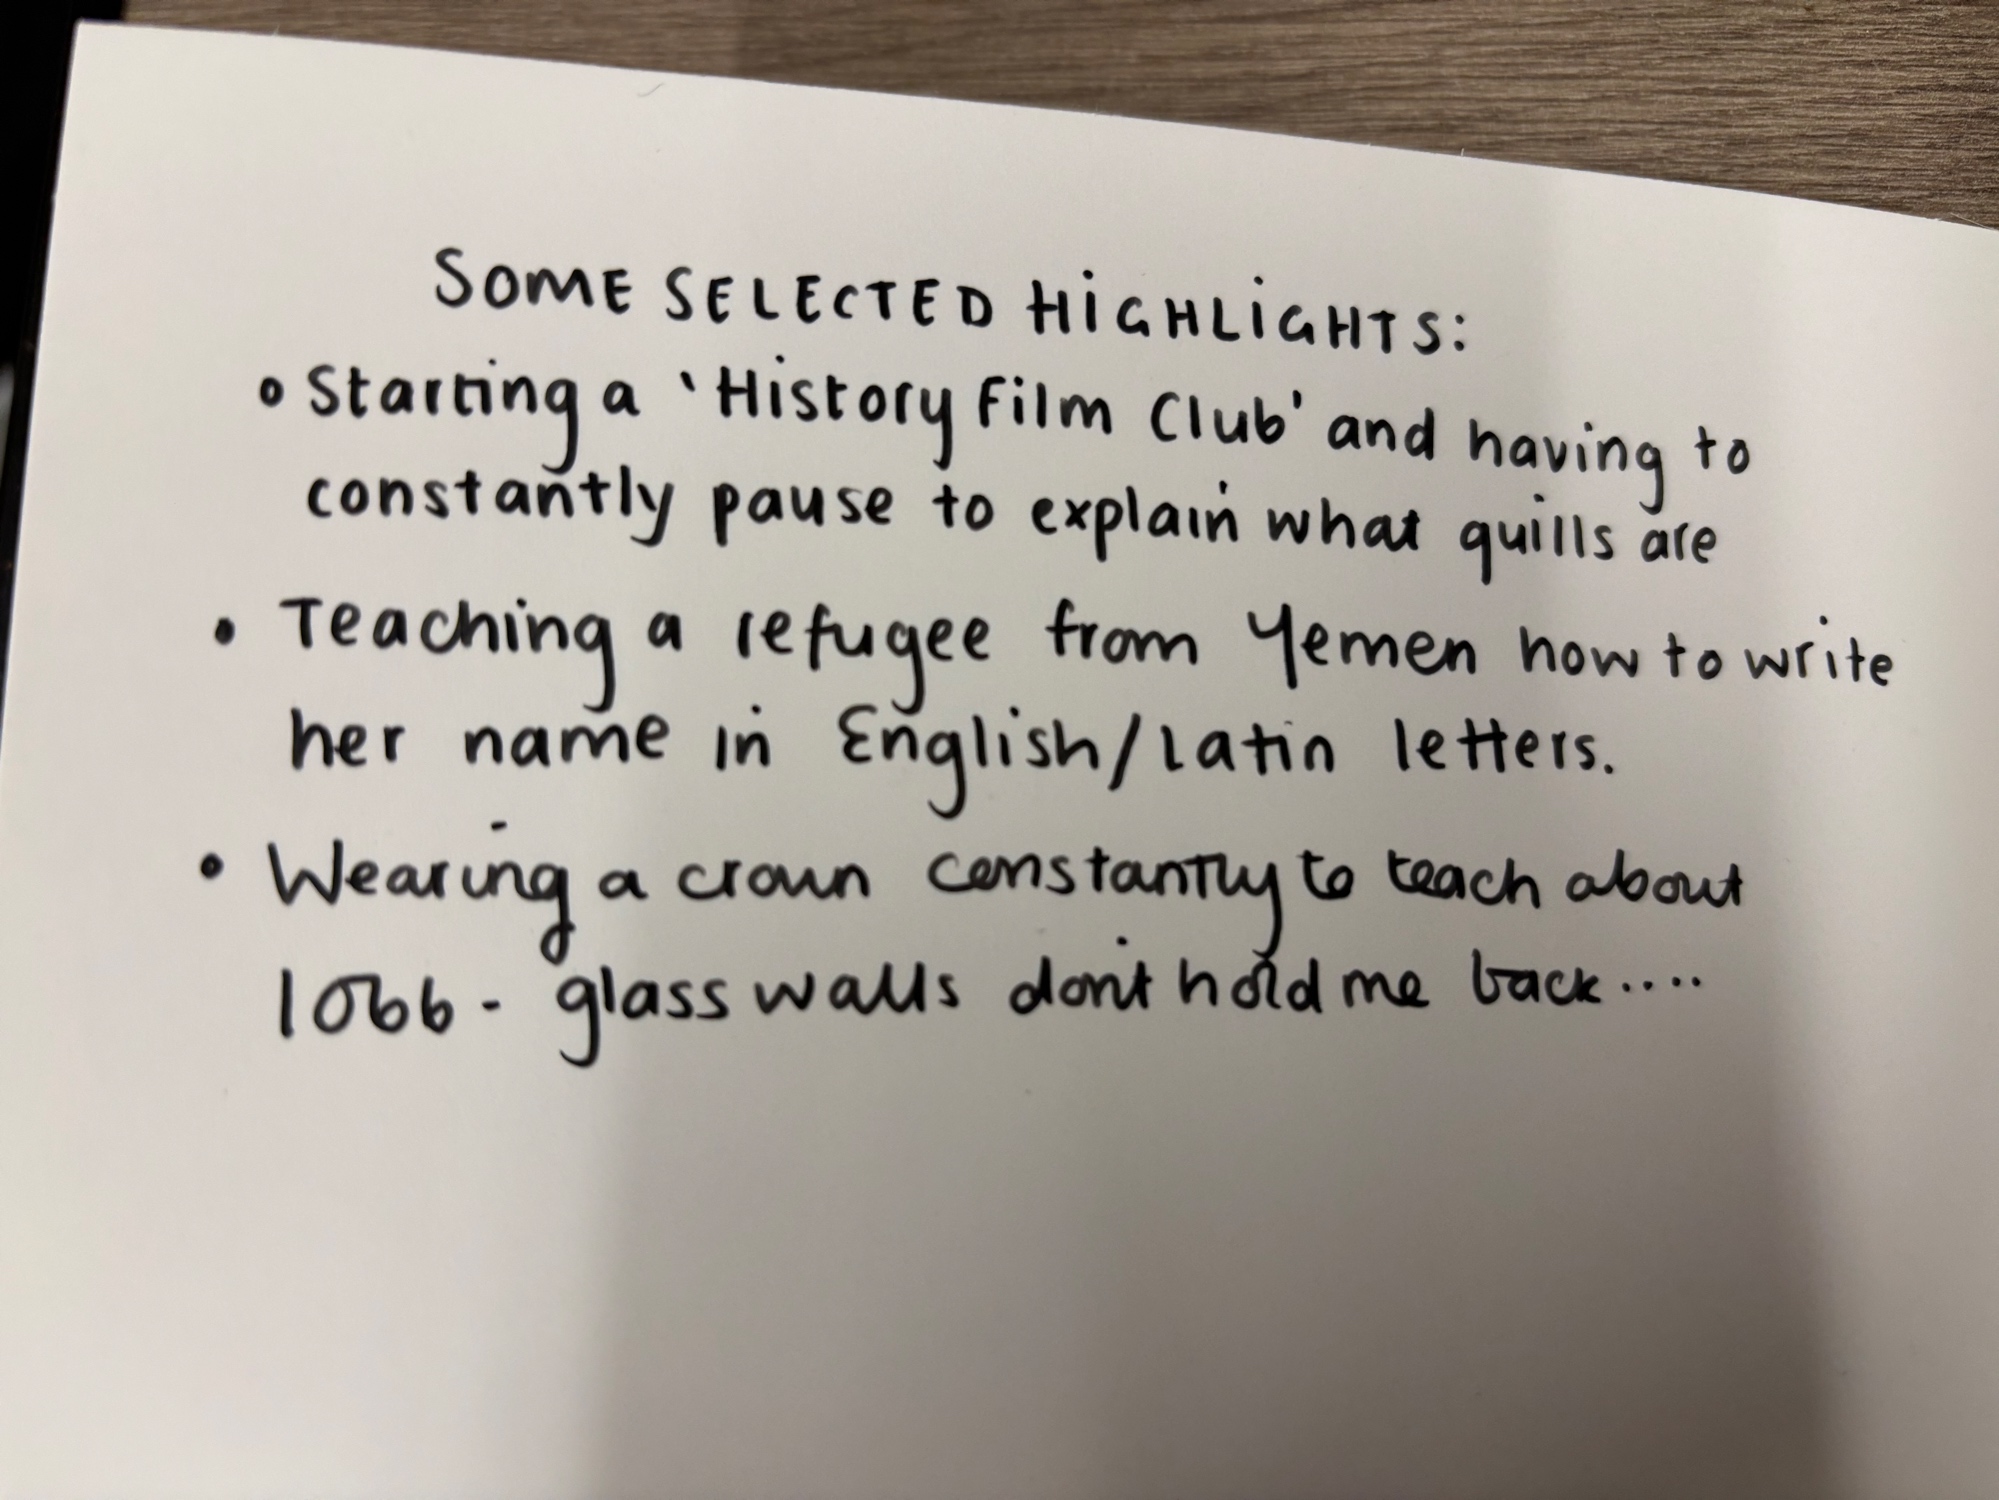 SOME SELECTED HIGHLIGHTS:
• Starting a 'History Film Club' and having to
constantly pause to explain what quills are
• Teaching a refugee from Yemen how to write
her name in English/Latin letters.
• Wearing a crown constantly to teach about
1066 - glass walls don't hold me back....